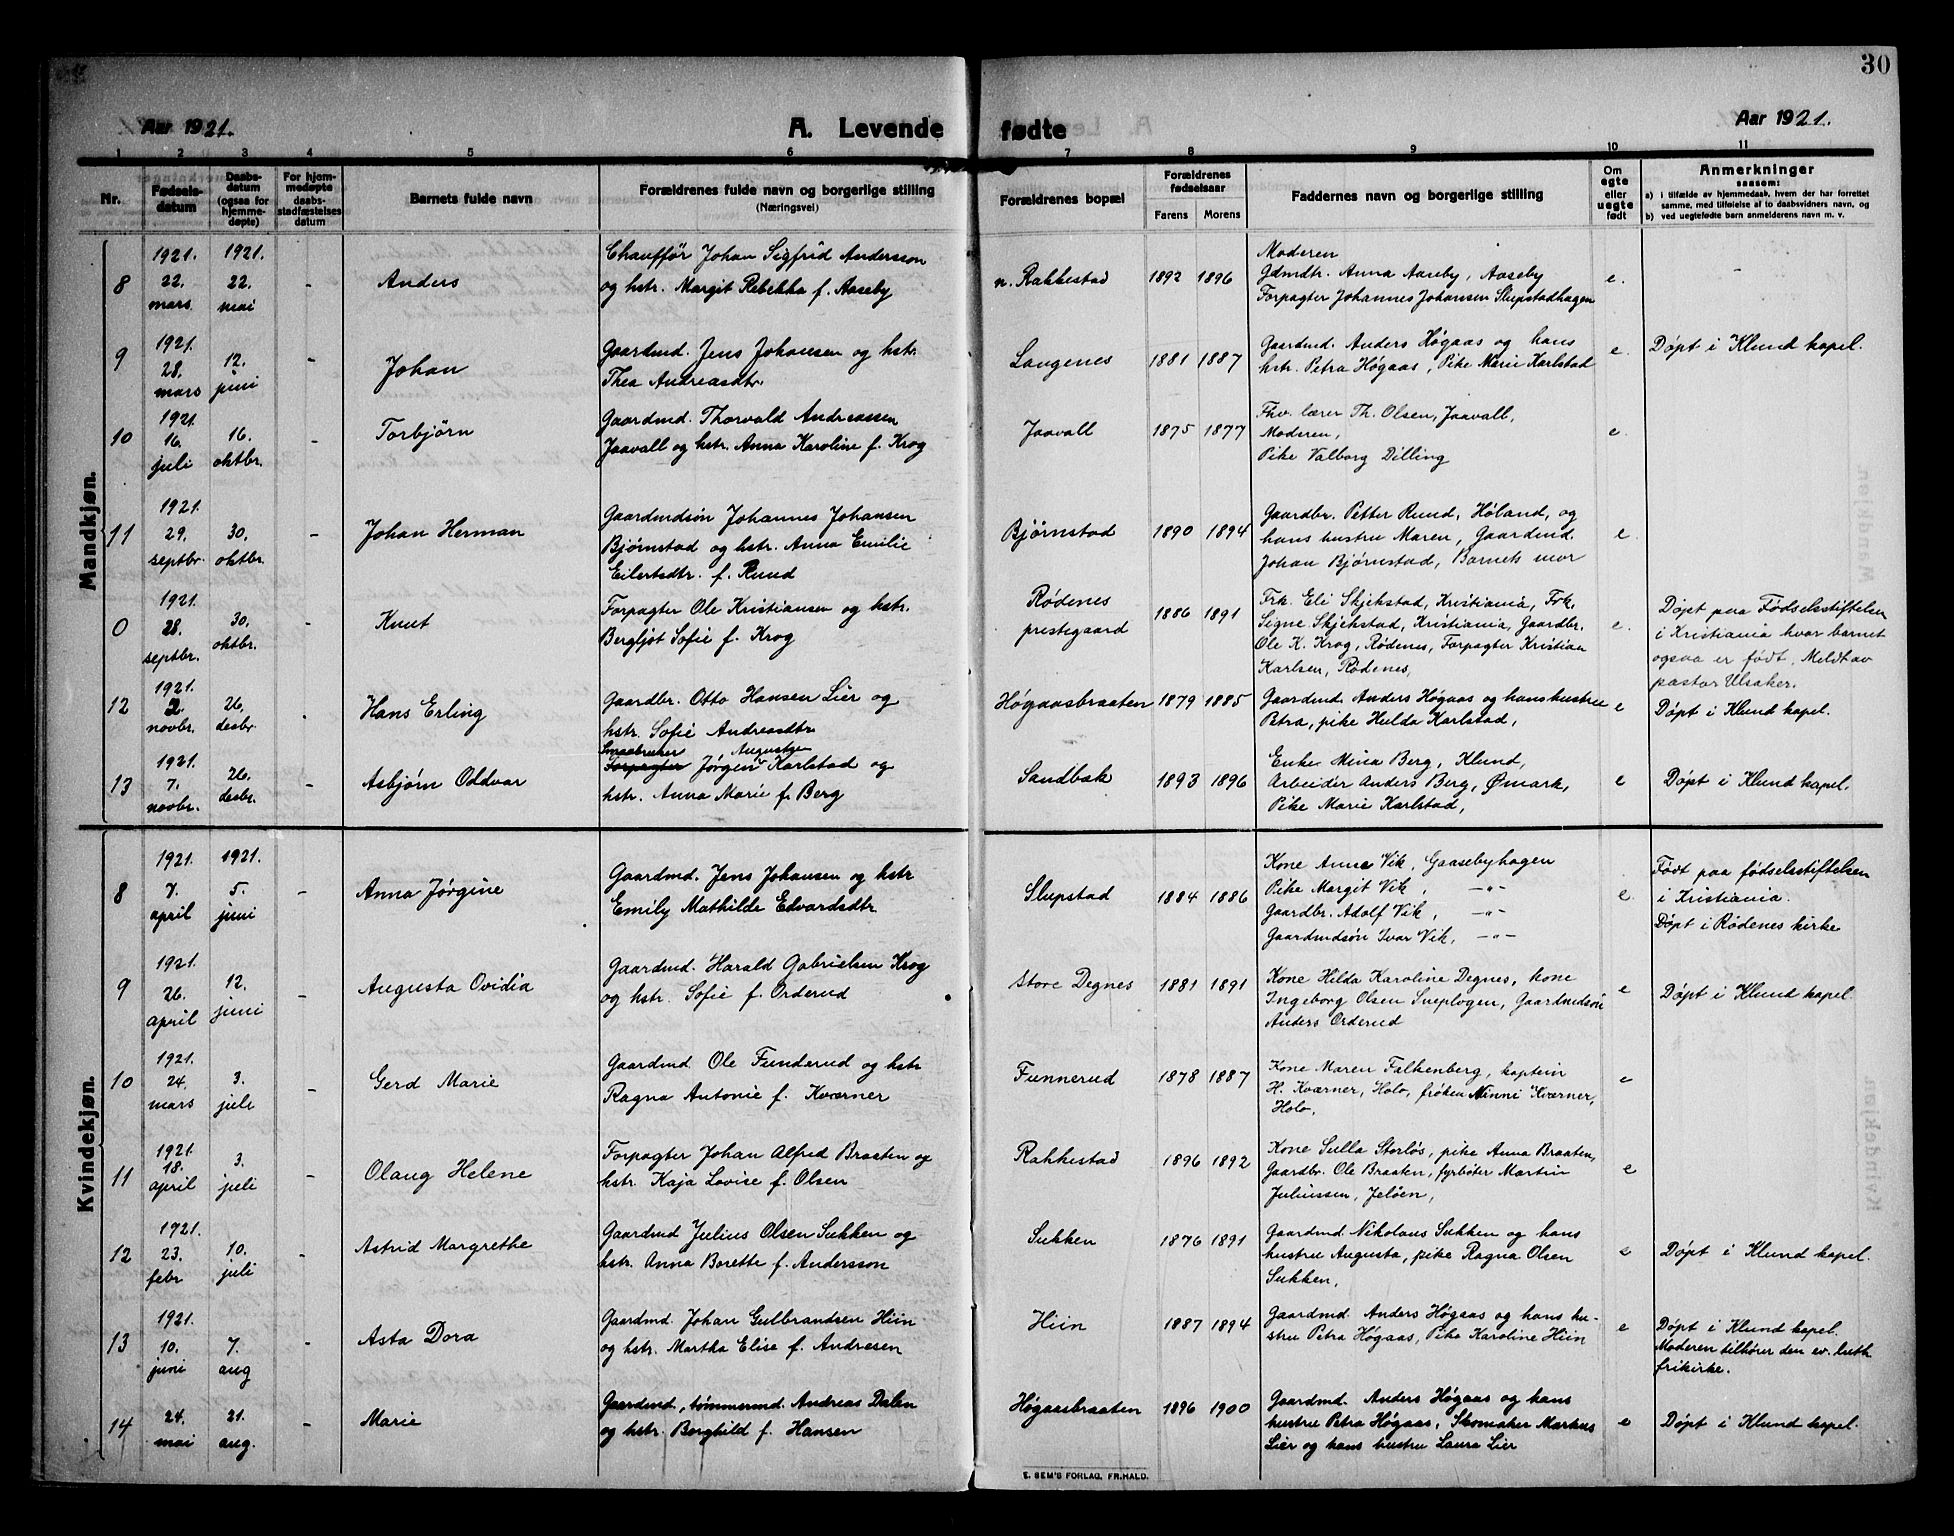 30
Aar 1921.
A. Levende fødte
Aar 1921.
1 2 3 4 5 6 7 8 9 10 11
Nr.
Fødsels-
datum
Daabs-
datum
(ogsaa for
hjemme-
døpte)
For hjem-
medøpte
daabs-
stadfæstelses
datum
Barnets fulde navn
Forældrenes fulde navn og borgerlige stilling
(Næringsvei)
Forældrenes bopæl
Forældrenes
fødselsaar
Farens Morens
Faddernes navn og borgerlige stilling
Om
egte
eller
uegte
født
Anmerkninger
saasom:
a) i tilfælde av hjemmedaab, hvem der har forrettet
samme, med tilføielse af to daabsvidners navn, og
b) ved uegtefødte barn anmelderens navn m. v.
Mandkjøn.
8
1921.
22.
mars
1921.
22.
mai
-
Anders
Chauffør Johan Sigfrid Andersson
og hstr. Margit Rebekka f. Aaseby
n. Rakkestad
1892 1896
Moderen
Gdmdtr. Anna Aaseby, Aaseby
Forpagter Johannes Johansen Slupstadhagen
e.
-
9
1921.
28.
mars
12.
juni
-
Johan
Gaardmd. Jens Johansen og hstr.
Thea Andreasdtr.
Langenes
1881 1887
Gaardmd. Anders Høgaas og hans
hstr. Petra Høgaas, Pike Marie Karlstad
e.
Døpt i Klund kapel.
10
1921.
16.
juli
16.
oktbr.
-
Torbjørn
Gaardmd. Thorvald Andreassen
Jaavall og hstr. Anna Karoline f. Krog
Jaavall
1875 1877
Fhv. lærer Th. Olsen, Jaavall,
Moderen,
Pike Valborg Dilling
e.
11
1921.
29.
septbr.
30.
oktbr.
-
Johan Herman
Gaardmdsøn Johannes Johansen
Bjørnstad og hstr. Anna Emilie
Eilertsdtr. f. Rund
Bjørnstad
1890 1894
Gaardbr. Petter Rund, Høland, og
hans hustru Maren, Gaardmd.
Johan Bjørnstad, Barnets mor
e.
0
1921.
28.
septbr.
30.
oktbr.
-
Knut
Forpagter Ole Kristiansen og hstr.
Bergljot Sofie f. Krog
Rødenes
prestegaard
1886 1891
Frk. Eli Skjekstad, Kristiania, Frk.
Signe Skjekstad, Kristiania, Gaardbr.
Ole K. Krog, Rødenes, Forpagter Kristian
Karlsen, Rødenes,
e.
Døpt paa Fødselsstiftelsen
i Kristiania hvor barnet
ogsaa er født. Meldt av
pastor Ulsaker.
12
1921.
2.
novbr.
26.
desbr.
-
Hans Erling
Gaardbr. Otto Hansen Lier og
hstr. Sofie Andreasdtr.
Høgaasbraaten
1879 1885
Gaardmd. Anders Høgaas og hans hustru
Petra, pike Hulda Karlstad,
e
Døpt i Klund kapel.
13
1921.
7.
novbr.
26.
desbr.
-
Asbjørn Oddvar
Smaabruker Augustsen
Forpagter Jørgen Karlstad og
hstr. Anna Marie f. Berg
Sandbak
1893 1896
Enke Mina Berg, Klund,
Arbeider Anders Berg, Ømark,
Pike Marie Karlstad,
e
Døpt i Klund kapel.
Kvindekjøn.
8
1921.
7.
april
1921.
5.
juni
-
Anna Jørgine
Gaardmd. Jens Johansen og hstr
Emily Mathilde Edvardsdtr.
Slupstad
1884 1886
Kone Anna Vik, Gaasebyhagen
Pike Margit Vik, -"-
Gaardbr. Adolf Vik, -"-
Gaardmdsøn Ivar Vik, -"-
e
Født paa fødselsstiftelsen
i Kristiania.
Døpt i Rødenes kirke
9
1921.
26.
april
12.
juni
-
Augusta Ovidia
Gaardmd. Harald Gabrielsen Krog
og hstr. Sofie f. Orderud
Store Degnes
1881 1891
Kone Hilda Karoline Degnes, kone
Ingeborg Olsen Sneplogen, Gaardmdsøn
Anders Orderud
e
Døpt i Klund kapel.
10
1921.
24.
mars
3.
juli
-
Gerd Marie
Gaardmd Ole Funderud og hstr
Ragna Antonie f. Kværner
Funnerud
1878 1887
Kone Maren Falkenberg, kaptein
H. Kværner, Holo, frøken Ninni Kværner,
Holo,
e
11
1921.
18.
april
3.
juli
-
Olaug Helene
Forpagter Johan Alfred Braaten og
hstr. Kaja Lovise f. Olsen
Rakkestad
1896 1892
Kone Sulla Storløs, pike Anna Braaten,
Gaardbr. Ole Braaten, fyrbøter Martin
Juliussen, Jeløen,
e
12
1921.
23.
febr
10.
juli
-
Astrid Margrethe
Gaardmd Julius Olsen Sukken og
hstr. Anna Borette f. Andersson
Sukken
1876 1891
Gaardmd. Nikolaus Sukken og hans
hustru Augusta, pike Ragna Olsen
Sukken,
e
Døpt i Klund kapel.
13
1921.
10.
juni
7.
aug
-
Asta Dora
Gaardmd. Johan Gulbrandsen Hiin
og hstr. Martha Elise f. Andresen
Hiin
1887 1894
Gaardmd. Anders Høgaas og hans hu-
stru Petra Høgaas, Pike Karoline Hiin
e
Døpt i Klund kapel.
Moderen tilhører den ev. luth
frikirke.
14
24.
mai
21.
aug.
-
Marie
Gaardmd, tømmermd. Andreas Dalen
og hstr. Borghild f. Hansen
Høgaasbraaten
1896 1900
Gaardmd. Anders Høgaas og hans
hustru Petra Høgaas, Skomaker Markus
Lier og hans hustru Laura Lier
e
Døpt i Klund kapel.
E. SEM'S FORLAG, FR.HALD.